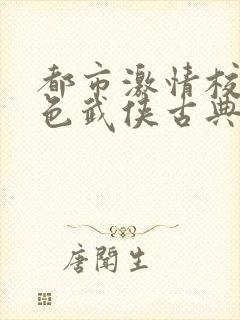 都市激情校
色武侠古典
唐闻生